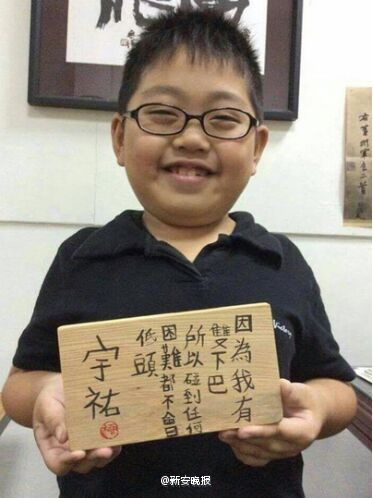 因為我有
雙下巴
所以碰到任何
困難都不會
低頭
宇祐
@新安晚报